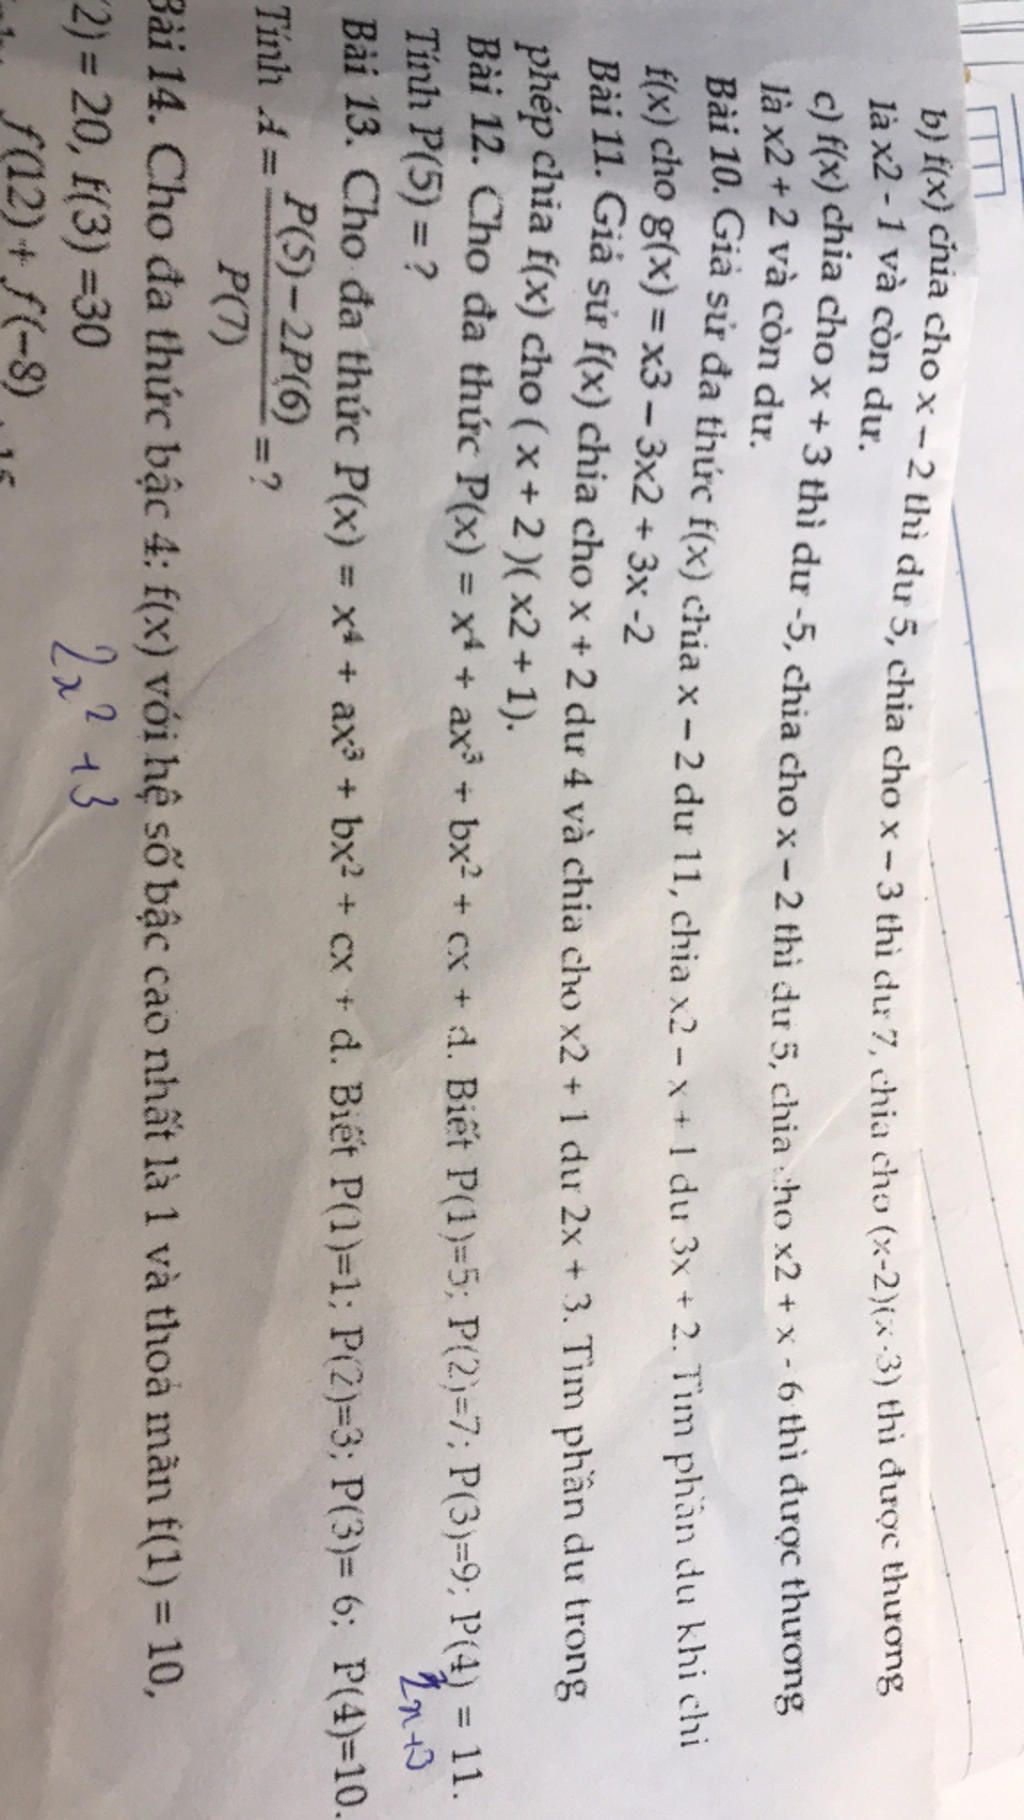 b) f(x) chia cho x – 2 thì dư 5, chia cho x – 3 thì dư 7, chia cho (x-2)(x-3) thì được thương
là x2 - 1 và còn dư.
c) f(x) chia cho x + 3 thì dư -5, chia cho x – 2 thì dư 5, chia cho x2 + x - 6 thì được thương
là x2 + 2 và còn dư.
Bài 10. Giả sử đa thức f(x) chia x – 2 dư 11, chia x2 – x + 1 dư 3x + 2. Tìm phần dư khi chi
f(x) cho g(x) = x3 – 3x2 + 3x -2
Bài 11. Giả sử f(x) chia cho x + 2 dư 4 và chia cho x2 + 1 dư 2x + 3. Tìm phần dư trong
phép chia f(x) cho ( x + 2 )( x2 + 1).
Bài 12. Cho đa thức P(x) = x⁴ + ax³ + bx² + cx + d. Biết P(1)=5; P(2)=7; P(3)=9; P(4) = 11.
Tính P(5) = ?
2x+3
Bài 13. Cho đa thức P(x) = x⁴ + ax³ + bx² + cx + d. Biết P(1)=1; P(2)=3; P(3)= 6; P(4)=10.
Tính A = P(5)−2P(6) / P(7) = ?
Bài 14. Cho đa thức bậc 4: f(x) với hệ số bậc cao nhất là 1 và thoả mãn f(1) = 10,
(2) = 20, f(3) =30
2x² + 3
f(12) + f(−8)